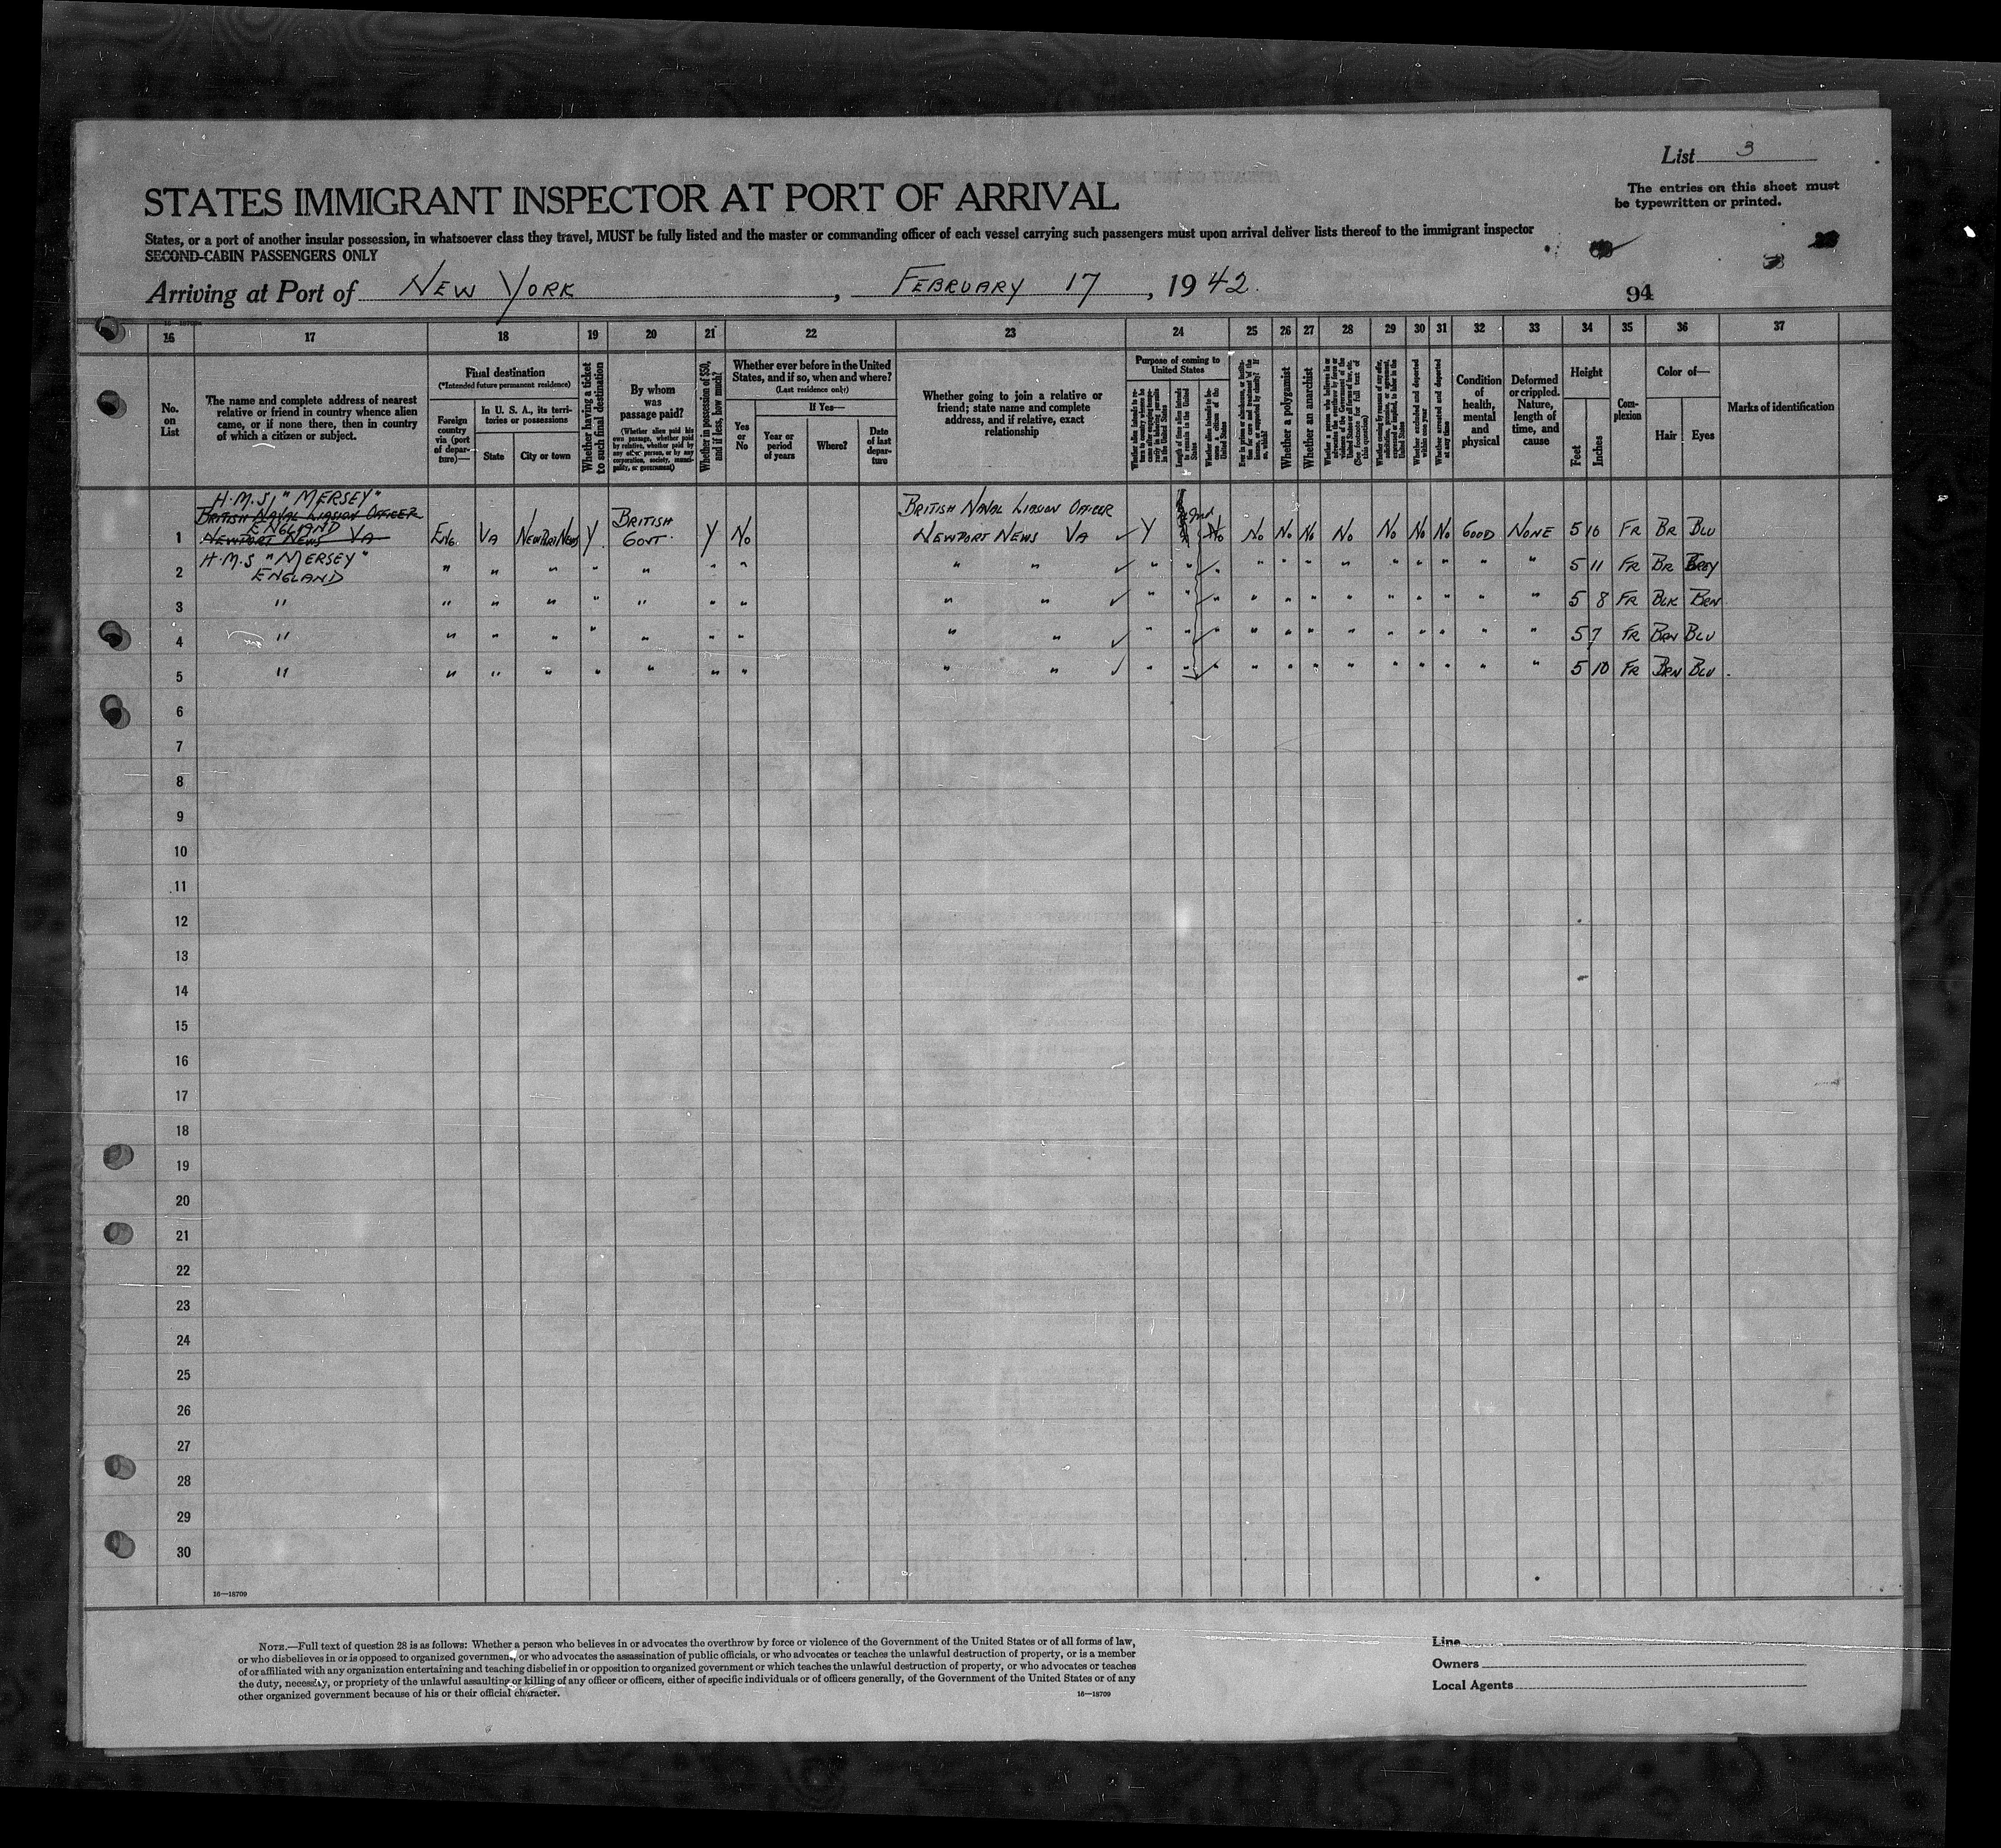 List 3
The entries on this sheet must
be typewritten or printed.
STATES IMMIGRANT INSPECTOR AT PORT OF ARRIVAL
States, or a port of another insular possession, in whatsoever class they travel, MUST be fully listed and the master or commanding officer of each vessel carrying such passengers must upon arrival deliver lists thereof to the immigrant inspector
SECOND-CABIN PASSENGERS ONLY
Arriving at Port of NEW YORK, FEBRUARY 17, 1942.
94
16 17 18 19 20 21 22 23 24 25 26 27 28 29 30 31 32 33 34 35 36 37
No. on List
The name and complete address of nearest
relative or friend in country whence alien
came, or if none there, then in country
of which a citizen or subject.
Final destination
(*Intended future permanent residence)
Foreign country via (port of departure)—
In U. S. A., its territories or possessions
State
City or town
Whether having a ticket to such final destination
By whom was passage paid?
(Whether alien paid his own passage, whether paid by relative, whether paid by any other person, or by any corporation, society, municipality, or government)
Whether in possession of $50, and if less, how much?
Whether ever before in the United States, and if so, when and where?
(Last residence only)
Yes or No
If Yes—
Year or period of years
Where?
Date of last departure
Whether going to join a relative or
friend; state name and complete
address, and if relative, exact
relationship
Purpose of coming to United States
Length of time alien intends to remain in the United States
Whether a polygamist
Whether an anarchist
Whether arrested and deported at any time
Condition of health, mental and physical
Deformed or crippled. Nature, length of time, and cause
Height
Feet
Inches
Complexion
Color of—
Hair
Eyes
Marks of identification
H.M.S. "MERSEY"
BRITISH NAVAL LIASION OFFICER
ENGLAND
1 NEWPORT NEWS VA ENG. VA NEWPORT NEWS Y. BRITISH GOVT. Y No BRITISH NAVAL LIASION OFFICER NEWPORT NEWS VA Y No No No No No No No No GOOD NONE 5 10 FR BR BLU
H.M.S "MERSEY"
2 ENGLAND " " " " " " " " " " " " " " " " " " " " " 5 11 FR BR GREY
3 " " " " " " " " " " " " " " " " " " " " " " 5 8 FR BLK BRN
4 " " " " " " " " " " " " " " " " " " " " " " 5 7 FR BRN BLU
5 " " " " " " " " " " " " " " " " " " " " " " 5 10 FR BRN BLU.
6
7
8
9
10
11
12
13
14
15
16
17
18
19
20
21
22
23
24
25
26
27
28
29
30
16—18709
NOTE.—Full text of question 28 is as follows: Whether a person who believes in or advocates the overthrow by force or violence of the Government of the United States or of all forms of law,
or who disbelieves in or is opposed to organized government, or who advocates the assassination of public officials, or who advocates or teaches the unlawful destruction of property, or is a member
of or affiliated with any organization entertaining and teaching disbelief in or opposition to organized government or which teaches the unlawful destruction of property, or who advocates or teaches
the duty, necessity, or propriety of the unlawful assaulting or killing of any officer or officers, either of specific individuals or of officers generally, of the Government of the United States or of any
other organized government because of his or their official character.
16—18709
Line
Owners
Local Agents